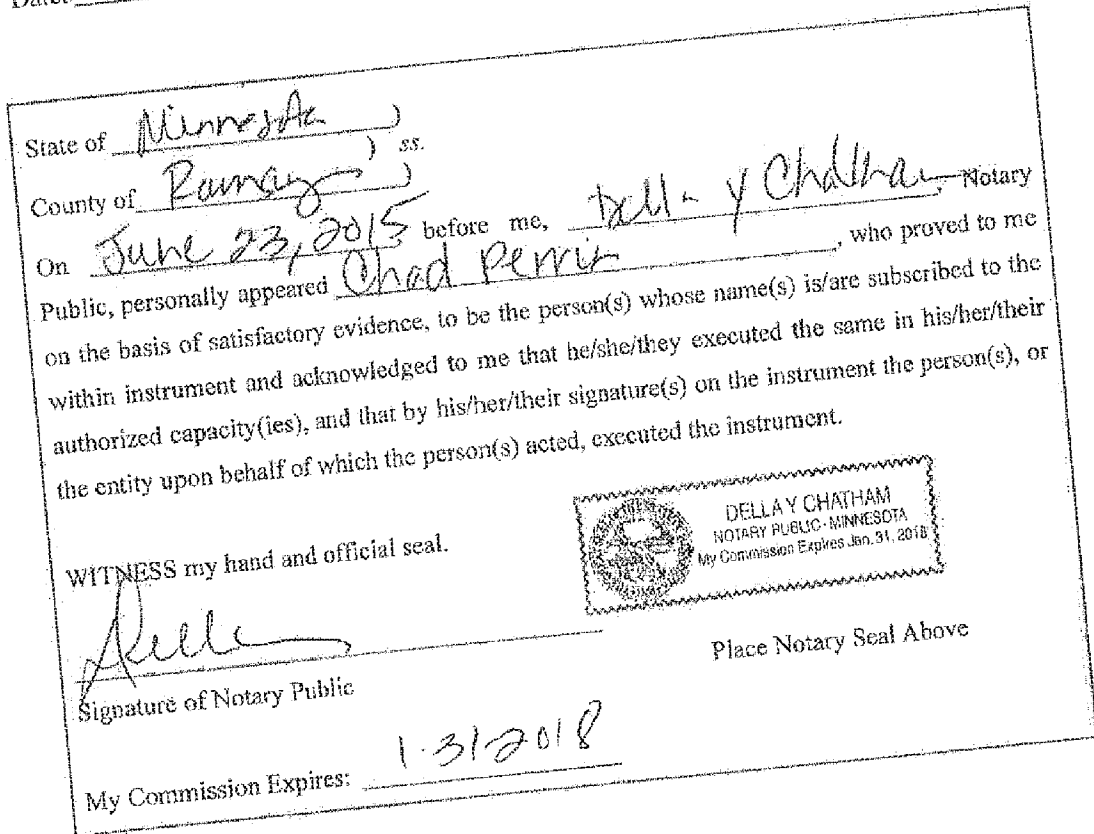 Date:
State of Minnesota )
) ss.
County of Ramsey )
On June 23, 2015 before me, Della Y Chatham, Notary
Public, personally appeared Chad Perrin, who proved to me
on the basis of satisfactory evidence, to be the person(s) whose name(s) is/are subscribed to the
within instrument and acknowledged to me that he/she/they executed the same in his/her/their
authorized capacity(ies), and that by his/her/their signature(s) on the instrument the person(s), or
the entity upon behalf of which the person(s) acted, executed the instrument.
DELLA Y CHATHAM
NOTARY PUBLIC - MINNESOTA
My Commission Expires Jan. 31, 2018
WITNESS my hand and official seal.
Place Notary Seal Above
Signature of Notary Public
My Commission Expires: 1-31-2018